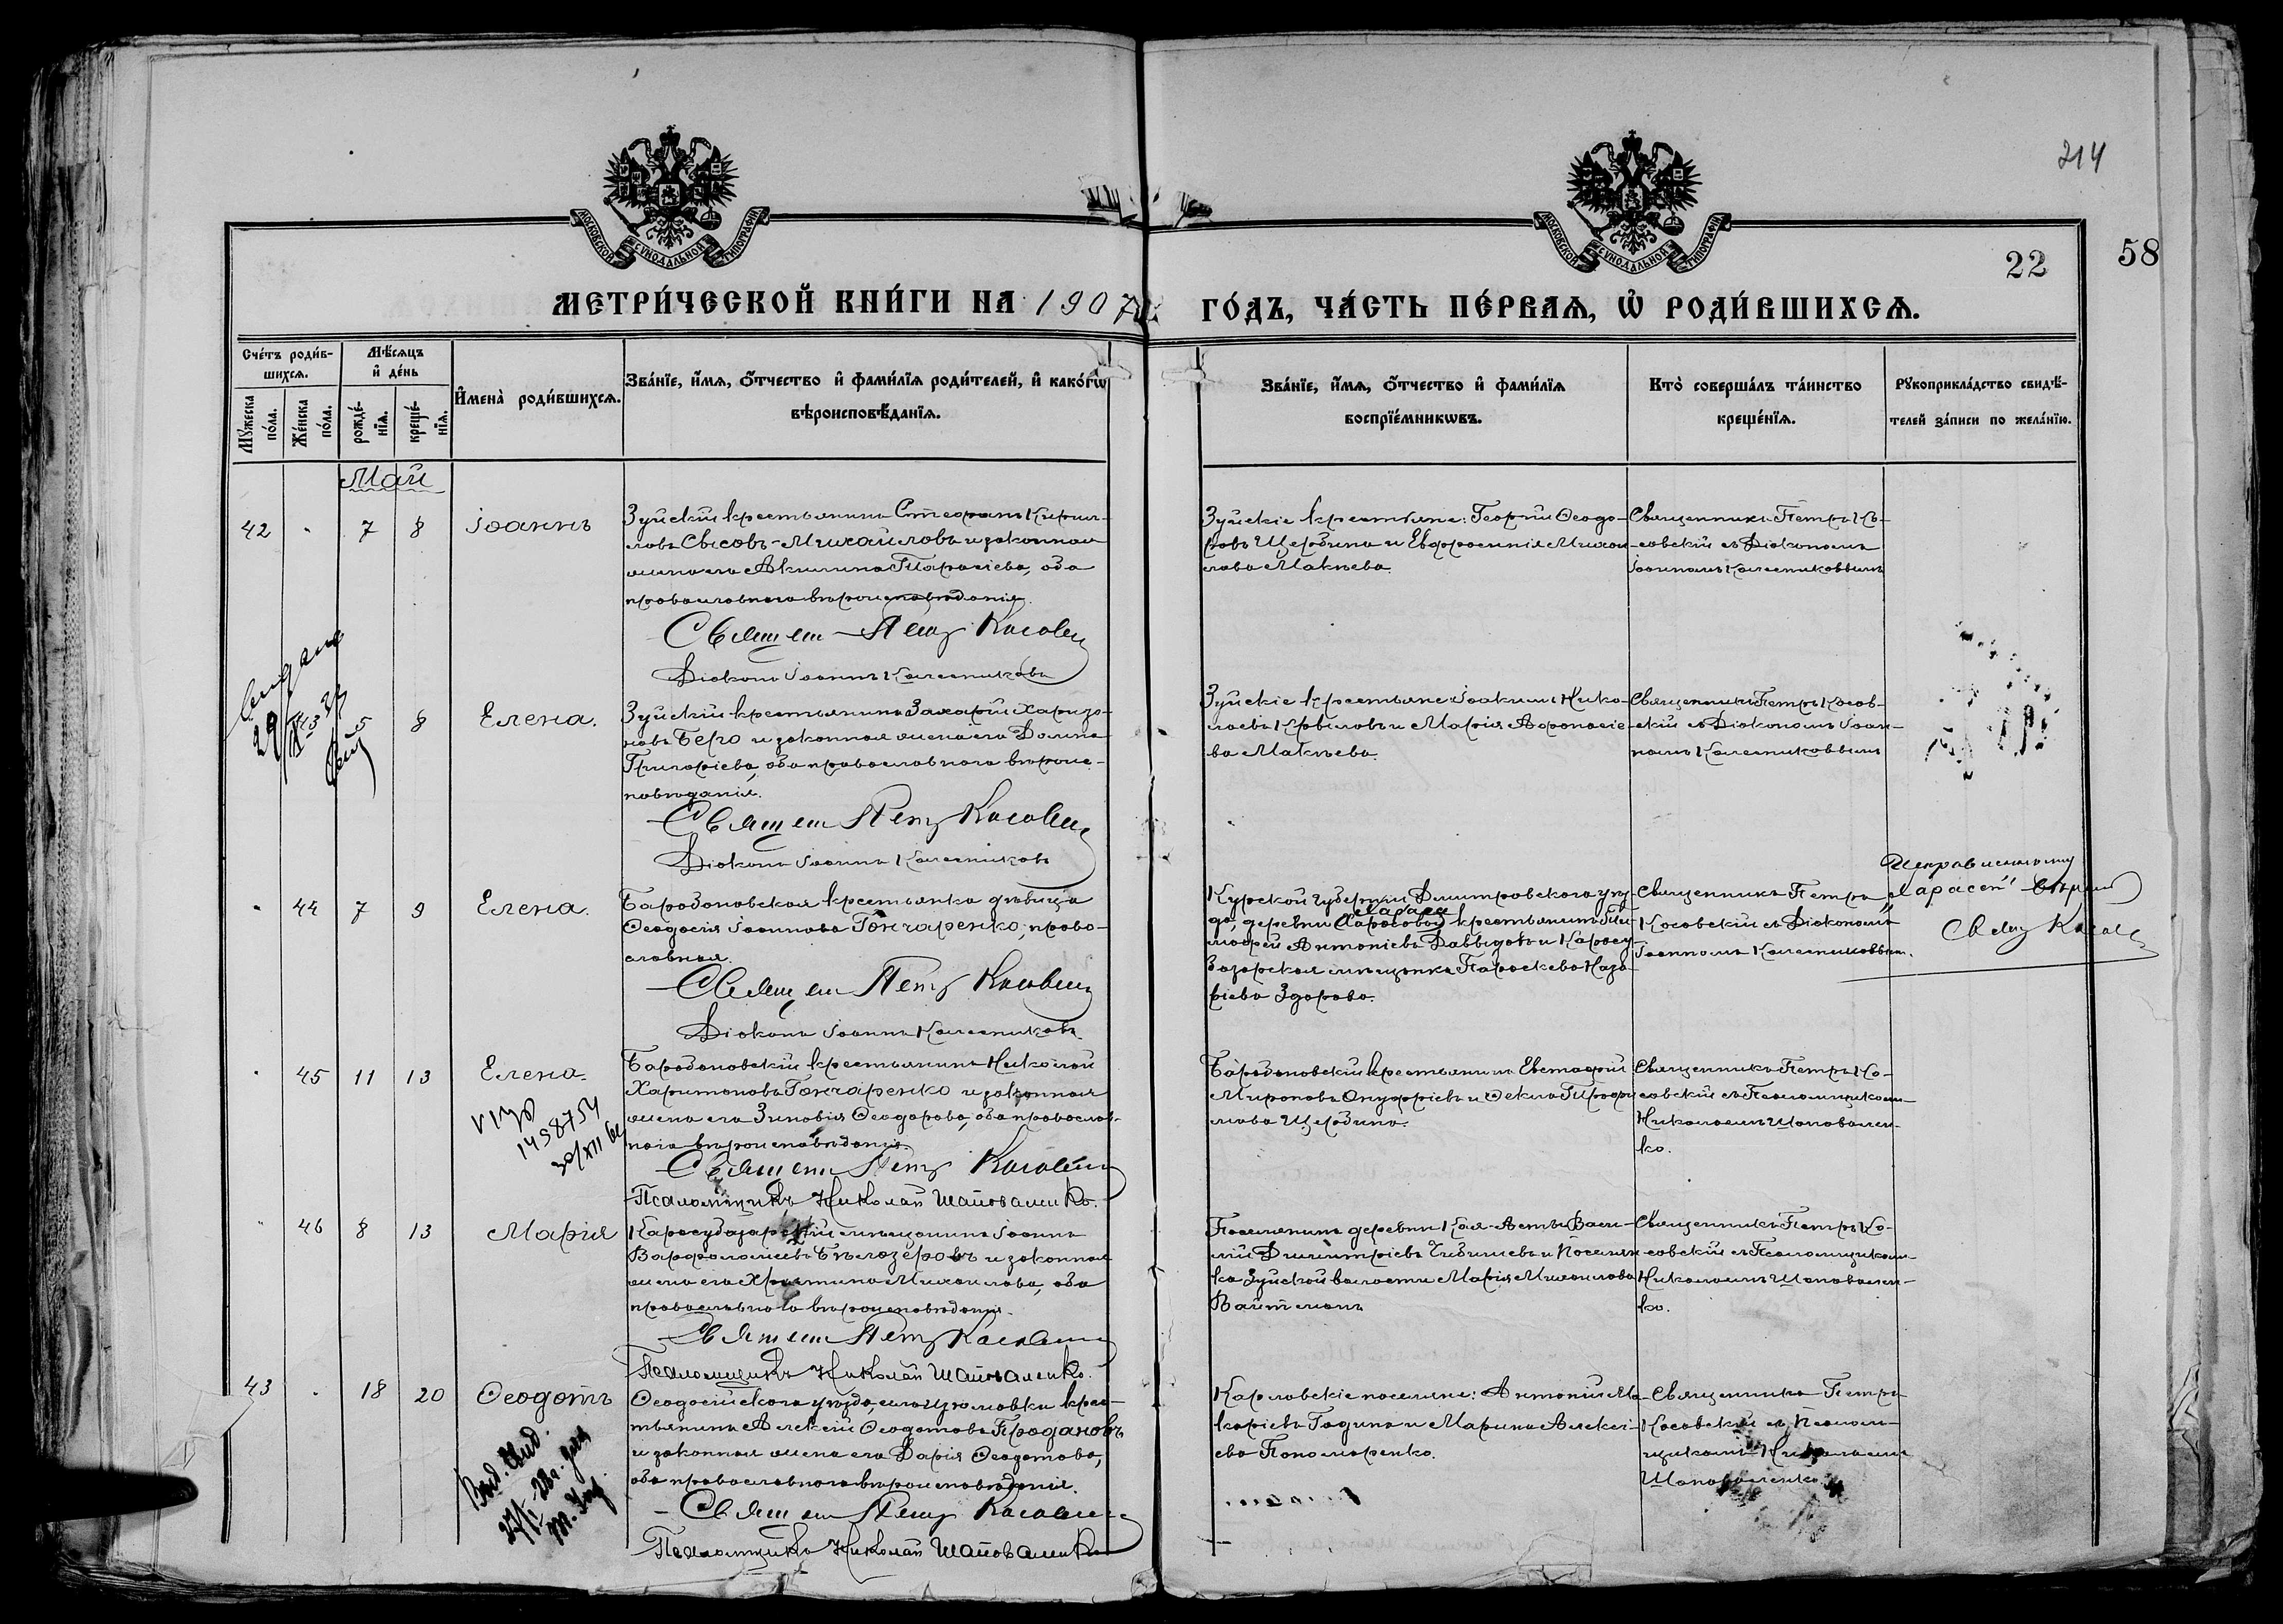 214
58
22
МОСКОВСКОЙ СѴНОДАЛЬНОЙ ТИПОГРАФІИ
МОСКОВСКОЙ СѴНОДАЛЬНОЙ ТИПОГРАФІИ
МЕТРИ́ЧЕСКОЙ КНИ́ГИ НА 1907
ГО́ДЪ, ЧА́СТЬ ПЕ́РВАѦ, Ѡ҆ РОДИ́ВШИХСѦ.
Сче́тъ роди́в-
шихсѧ.
Мѹ́жеска
по́ла.
Же́нска
по́ла.
Мѣ́сѧцъ
и҆ де́нь
рожде́-
нїѧ.
креще́-
нїѧ.
И҆мена̀ роди́вшихсѧ.
Зва́нїе, и҆́мѧ, ѻ҆́тчество и҆ фами́лїѧ роди́телей, и҆ како́гѡ
вѣроисповѣ́данїѧ.
Зва́нїе, и҆́мѧ, ѻ҆́тчество и҆ фами́лїѧ
воспрїе́мникѡвъ.
Кто̀ соверша́лъ та́инство
креще́нїѧ.
Рѹкоприкла́дство свидѣ́-
телей за́писи по жела́нїю.
Май
42 " 7 8 Іоаннъ
Зуйскій крестьянинъ Стефанъ Кирил-
ловъ Сысовъ-Михайловъ и законная
жена его Акилина Тарасіева, оба
православнаго вѣроисповѣданія.
Священ Петр Косовскі
Діаконъ Іоаннъ Колесниковъ
Зуйскіе крестьяне: Георгій Ѳеодо-
ровъ Щербина и Евфросинія Михаи-
лова Макѣева.
Священникъ Петръ Ко-
совскій съ Діакономъ
Іоанномъ Колесниковымъ
43 5 8 Елена.
Зуйскій крестьянинъ Захарій Харизо-
новъ Берго и законная жена его Домна
Григоріева, оба православнаго вѣроис-
повѣданія.
Священ Петр Косовскі
Діаконъ Іоаннъ Колесниковъ
Зуйскіе крестьяне Іоакимъ Нико-
лаевъ Крыловъ и Марія Аѳанасіе-
ва Макѣева.
Священникъ Петръ Косов-
скій съ Діакономъ Іоан-
номъ Колесниковымъ
" 44 7 9 Елена.
Барабановская крестьянка дѣвица
Ѳеодосія Іоаннова Гончаренко, право-
славная.
Священ Петр Косовскі
Діаконъ Іоаннъ Колесниковъ
Курской губерніи Дмитровскаго уѣз-
да, деревни крестьянинъ Ти-
моѳей Антоніевъ Давыдовъ и Карасу-
базарская мѣщанка Параскева Наза-
ріева Здорова.
Священникъ Петръ
Косовскій съ Діакономъ
Іоанномъ Колесниковымъ.
Исправленному
вѣрить
Священ Косовскі
" 45 11 13 Елена.
1458754
30/XII
Барабановскій крестьянинъ Николай
Харитоновъ Гончаренко и законная
жена его Зиновія Ѳеодорова, оба православ-
наго вѣроисповѣданія.
Священ Петр Косовскі
Псаломщикъ Николай Шаповаленко.
Барабановскій крестьянинъ Евстафій
Мироновъ Онуфріевъ и Ѳекла Трофи-
мова Щербина.
Священникъ Петръ Ко-
совскій съ Псаломщикомъ
Николаемъ Шаповален-
ко.
" 46 8 13 Марія
Карасубазарскій мѣщанинъ Іоаннъ
Варфоломеевъ Бѣлозеровъ и законная
жена его Христина Михаилова, оба
православнаго вѣроисповѣданія.
Священ Петр Косовскі
Псаломщикъ Николай Шаповаленко.
Поселянинъ деревни Коя-Асты Васи-
лій Димитріевъ Чибишевъ и Поселян-
ка Зуйской волости Марія Михаилова
Вайтманъ
Священникъ Петръ Ко-
совскій съ Псаломщикомъ
Николаемъ Шаповален-
ко.
43 " 18 20 Ѳеодотъ
Выд. свид.
Ѳеодосійскаго уѣзда, крес-
тьянинъ Алексій Ѳеодотовъ Продановъ
и законная жена его Дарія Ѳеодотова,
оба православнаго вѣроисповѣданія.
Священ Петр Косовскі
Псаломщикъ Николай Шаповаленко
Карловскіе поселяне: Антоній Ма-
каріевъ Година и Марина Алексі-
ева Пономаренко.
Священникъ Петръ
Косовскій съ Псалом-
щикомъ Николаемъ
Шаповаленко.